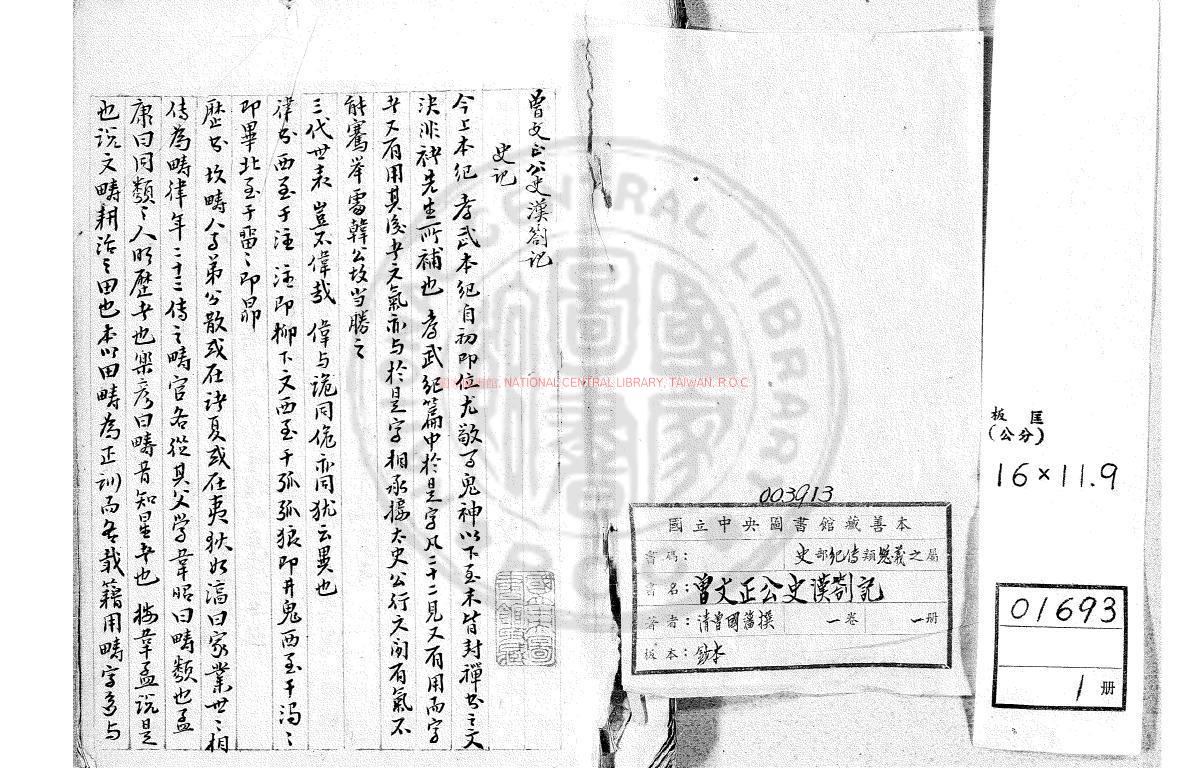 板匡
(公分)
16×11.9
01693
1 冊
003913
國立中央圖書館藏善本
書碼: 史部紀傳類總義之屬
書名: 曾文正公史漢劄記
著者: 清曾國藩撰 一卷 一冊
版本: 鈔本
NATIONAL CENTRAL LIBRARY, TAIWAN, R.O.C.
CENTRAL LIBRARY
曾文正公史漢劄記
史記
今上本紀 孝武本紀自初即位尤敬鬼神以下至末皆封禪書之文
決非褚先生所補也 孝武紀篇中於是字凡二十二見又有用而字
者又有用其後者文氣亦与於是字相承接太史公行文間有氣不
能騫舉處韓公故当勝之
三代世表 豈不偉哉 偉与詭同佹亦同犹云異也
律書 西至于注 注即柳下文西至于弧弧狼即井鬼西至于濁濁
即畢北至于留留即昴
歷書 故疇人子弟分散或在諸夏或在夷狄如淳曰家業世世相
傳為疇律年二十三傳之疇官各從其父学韋昭曰疇類也孟
康曰同類之人明歷者也樂彥曰疇昔知星者也 按韋孟說是
也說文疇耕治之田也本以田疇為正訓而各載籍用疇字多与